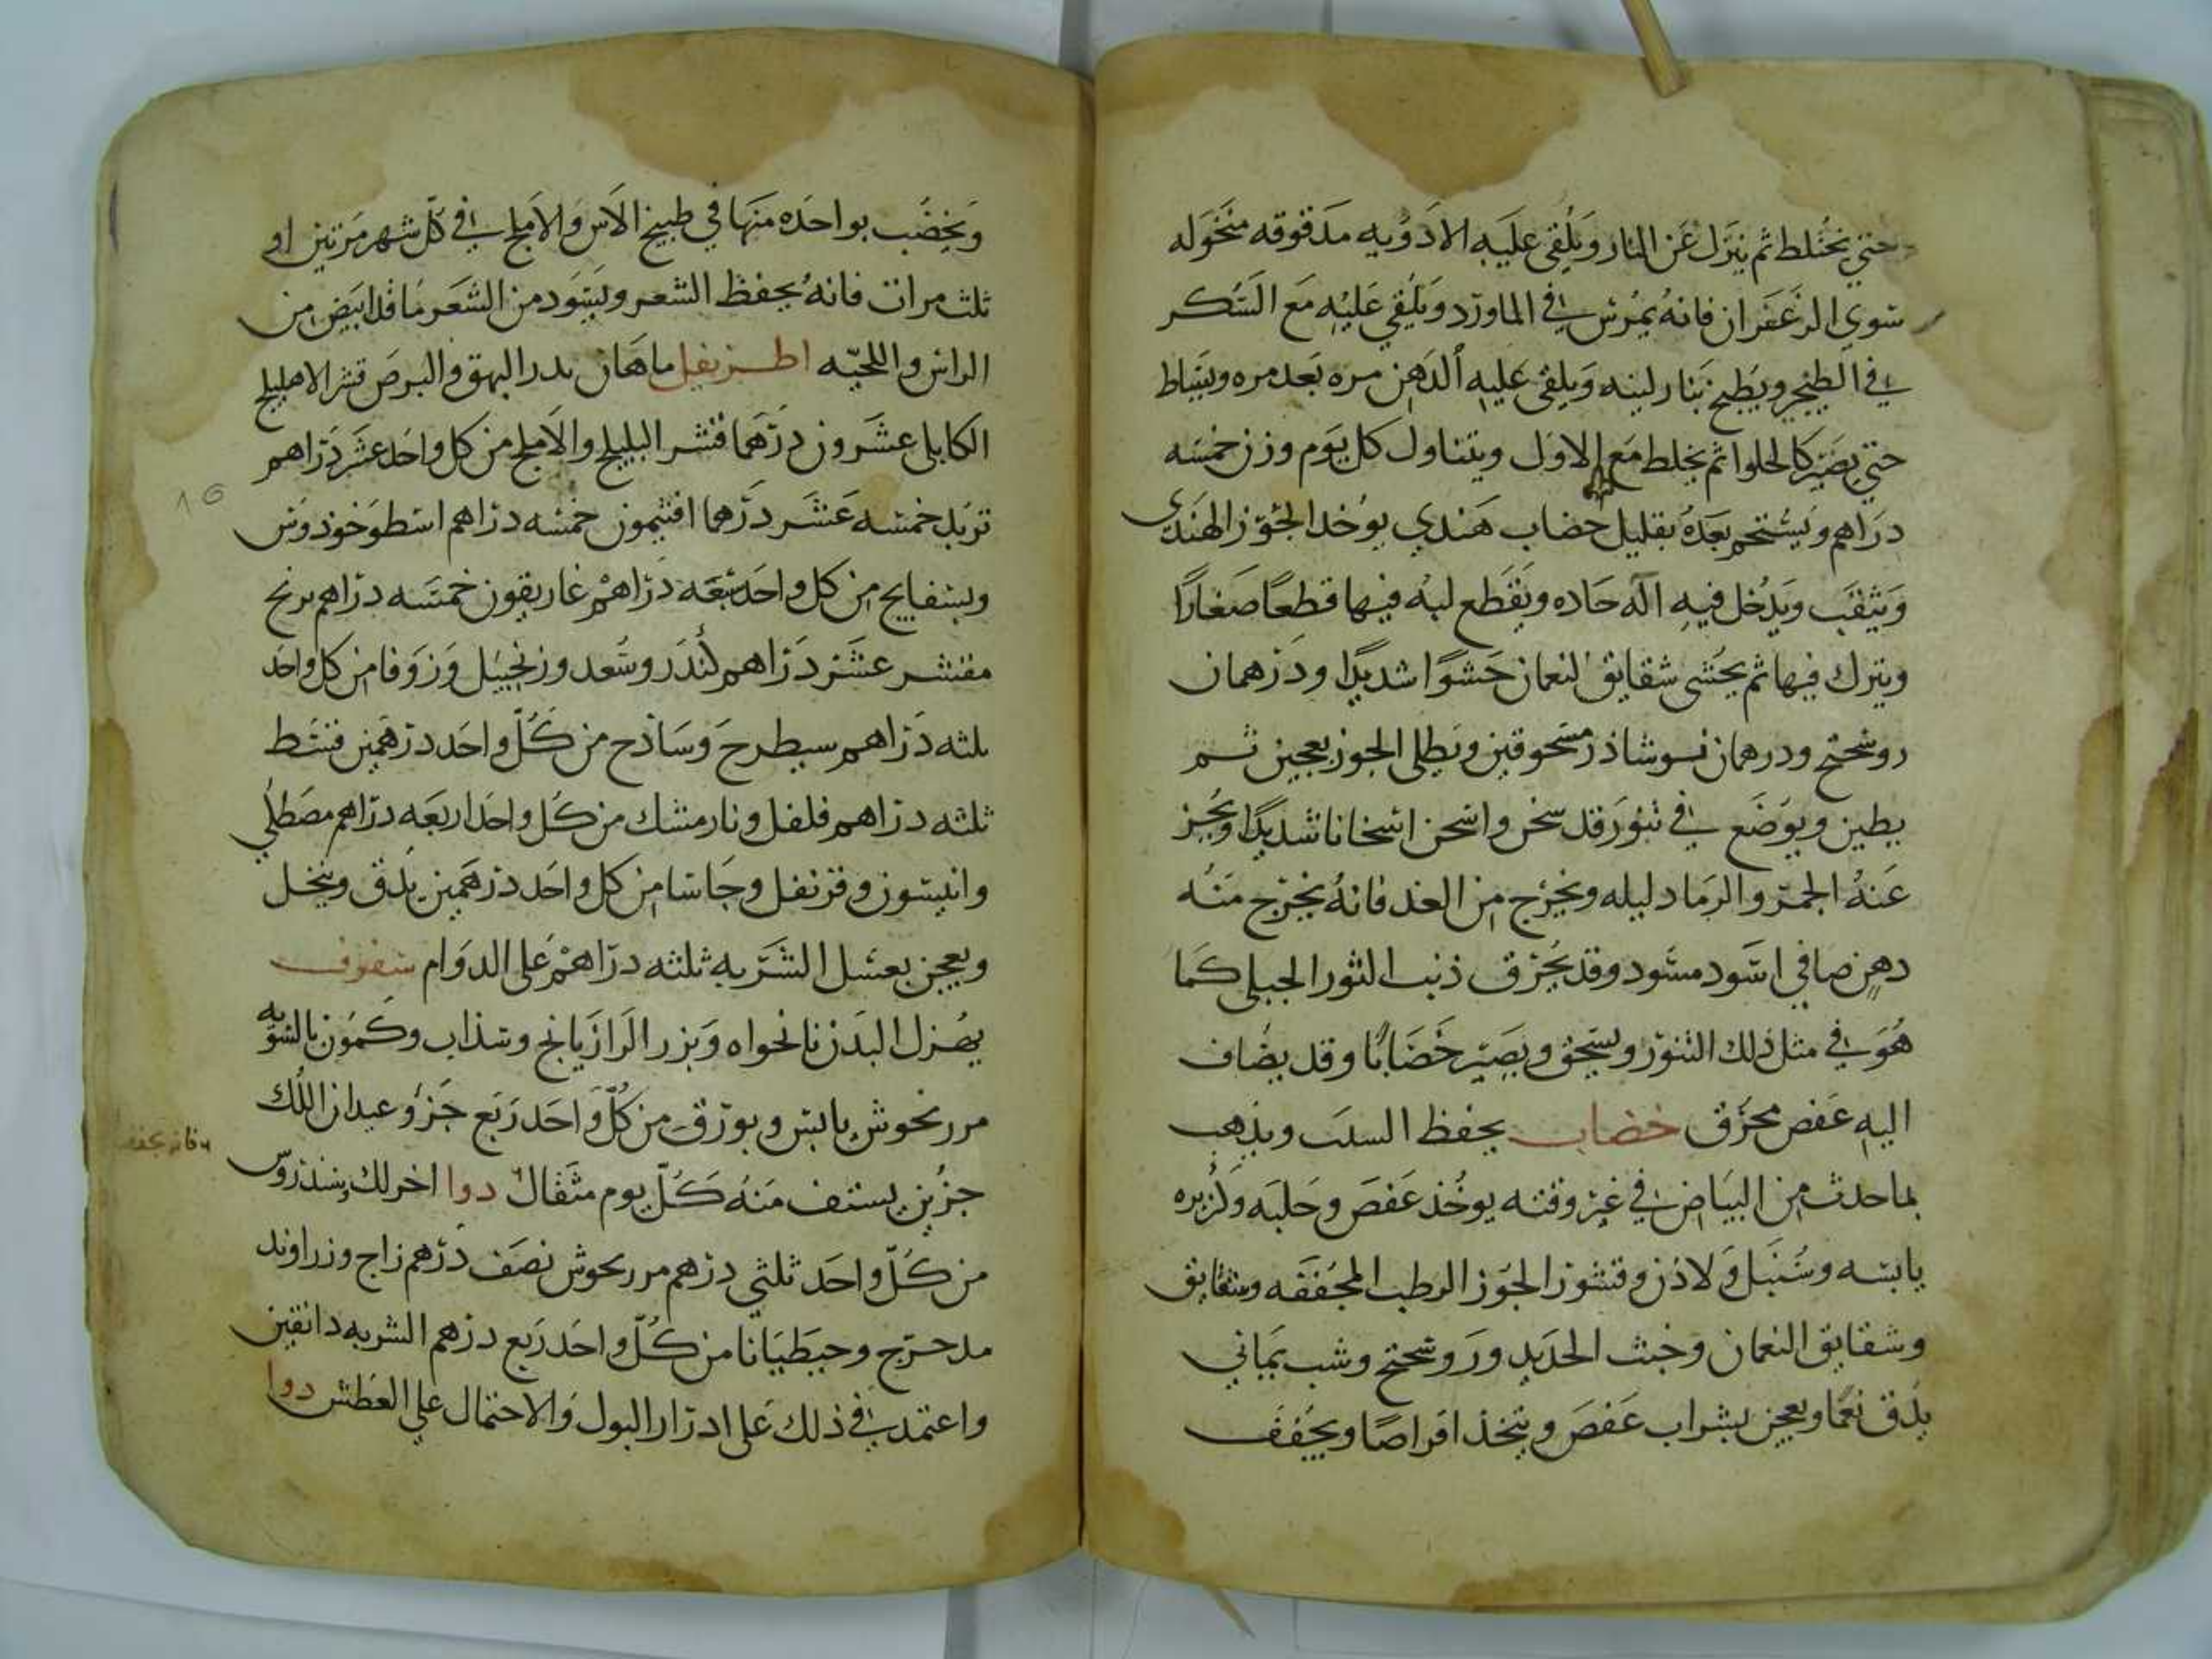 حتى يختلط ثم ينزل عن النار ويلقى عليه الادويه مدقوقه منخوله
سوى الزعفران فانه يمرس في الماورد ويلقى عليه مع السكر
في الطنجير ويطبخ بنار لينه ويلقى عليه الدهن مره بعد مره ويساط
حتى يصير كالحلوا ثم يخلط مع الاول ويتناول كل يوم وزن خمسه
دراهم ويستحم بعده بقليل خضاب هندي يوخد الجوز الهندى
ويثقب ويدخل فيه اله حاده ويقطع لبه فيها قطعًا صغارًا
ويترك فيها ثم يحشى شقايق النعمان حشوًا شديدًا ودرهمان
روسختج ودرهمان نوشاذر مسحوقين ويطلى الجوز بعجين ثم
بطين ويوضع في تنور قد سخن واسخن اسخانا شديدًا
عنه الجمر والرماد ليله ويخرج من الغد فانه يخرج منه
دهن صافي اسود مسود وقد يحرق ذنب الثور الجبلي كما
هو في مثل ذلك التنور ويسحق ويصير خضابًا وقد يضاف
اليه عفص محرق خضاب يحفظ ويذهب
بما حدث من البياض في غير وقته يوخذ عفص وحلبه وكزبره
يابسه وسنبل ولادن وقشور الجوز الرطب المجففه وشقايق
وشقايق النعمان وخبث الحديد وروسختج وشب يماني
يدق نعمًا ويعجن بشراب عفص ويتخذ اقراصًا ويجفف
ويخضب بواحده منها في طبيخ الاس والاملج في كل شهر مرتين او
ثلث مرات فانه يحفظ الشعر ويسود من الشعر ما قد ابيض من
الراس واللحيه اطريفل ماهان البهق والبرص قشر الاهليلج
الكابلي عشرون درهما قشر البليلج والاملج من كل واحد عشر دراهم
تربد خمسه عشر درهما افتيمون خمسه دراهم اسطوخودوس
وبسفايج من كل واحد سبعه دراهم غاريقون خمسه دراهم برنج
مقشر عشر دراهم كندر وسعد وزنجبيل وزوفا من كل واحد
ثلثه دراهم سيطرج وساذج من كل واحد درهمين قسط
ثلثه دراهم فلفل ونارمشك من كل واحد اربعه دراهم مصطكي
وانيسون وقرنفل وحاشا من كل واحد درهمين يدق وينخل
ويعجن بعسل الشربه ثلثه دراهم على الدوام سفوف
يهزل البدن نانخواه وبزر الرازيانج وسذاب وكمون بالسويه
مرزنجوش يابس وبورق من كل واحد ربع جزؤ عيدان اللك
جزين يستف منه كل يوم مثقال دوا اخر لك وسندروس
من كل واحد ثلثي درهم مرزنجوش نصف درهم زاج وزراوند
مدحرج وجنطيانا من كل واحد ربع درهم الشربه دانقين
واعتمد في ذلك على ادرار البول والاحتمال على العطش دوا